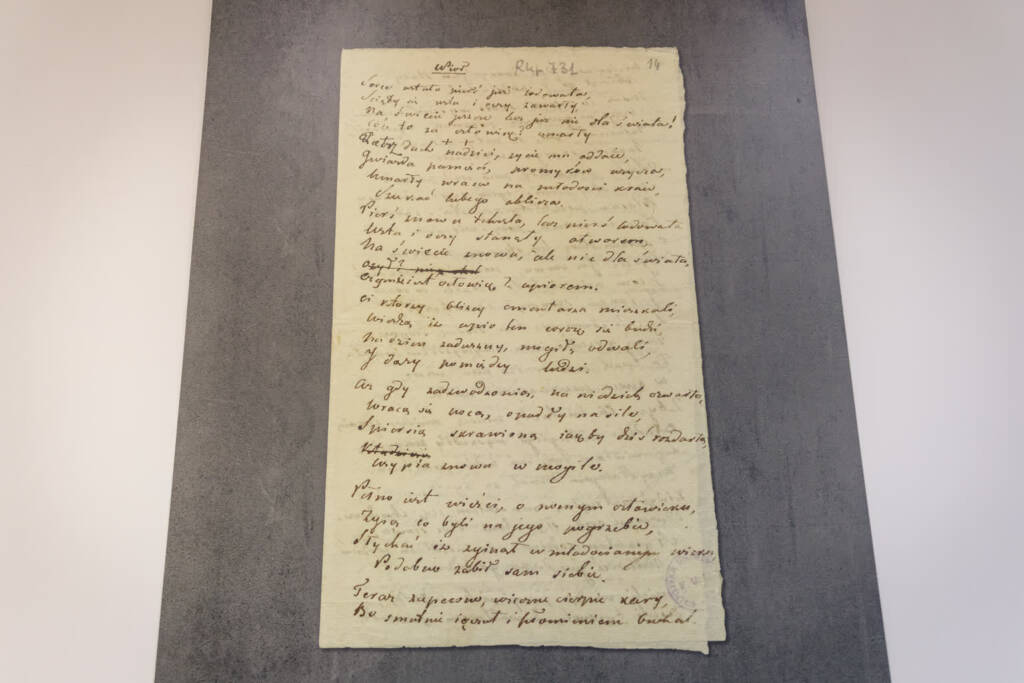 Upior
Rkp 731
14
Serce ustało pierś już lodowata,
Ścięły się usta i oczy zawarły,
Na świecie jeszcze lecz już nie dla świata!
Cóż to za człowiek? umarły
Patrz duch nadziei, życie mu oddaie,
Gwiazda pamięci, promyków użycza,
Umarły wraca na młodości kraie,
Szukać lubego oblicza.
Pierś znowu tchnęła, lecz pierś lodowata
Usta i oczy stanęły otworem,
Na świecie znowu, ale nie dla świata,
Czymże iest człowiek? upiorem.
Ci którzy bliżey cmentarza mieszkali,
Wiedzą iż upior ten corocz się budzi,
Na dzień zaduszny, mogiłę odwali,
I dąży pomiędzy ludzi.
Aż gdy zadzwonią, na niedzielę czwartą,
Wraca się nocą, opadły na sile,
Spiersią skrwawioną iakby dziś rozdartą,
Usypia znowu w mogile.
Pełno iest wieści, o nocnym człowieku,
Żyią co byli na jego pogrzebie,
Słychać iż zginął w młodocianym wieku,
Podobno zabił sam siebie.
Teraz zapewne, wieczne cierpie kary,
Bo smutnie ięczał i płomieniem buchał.